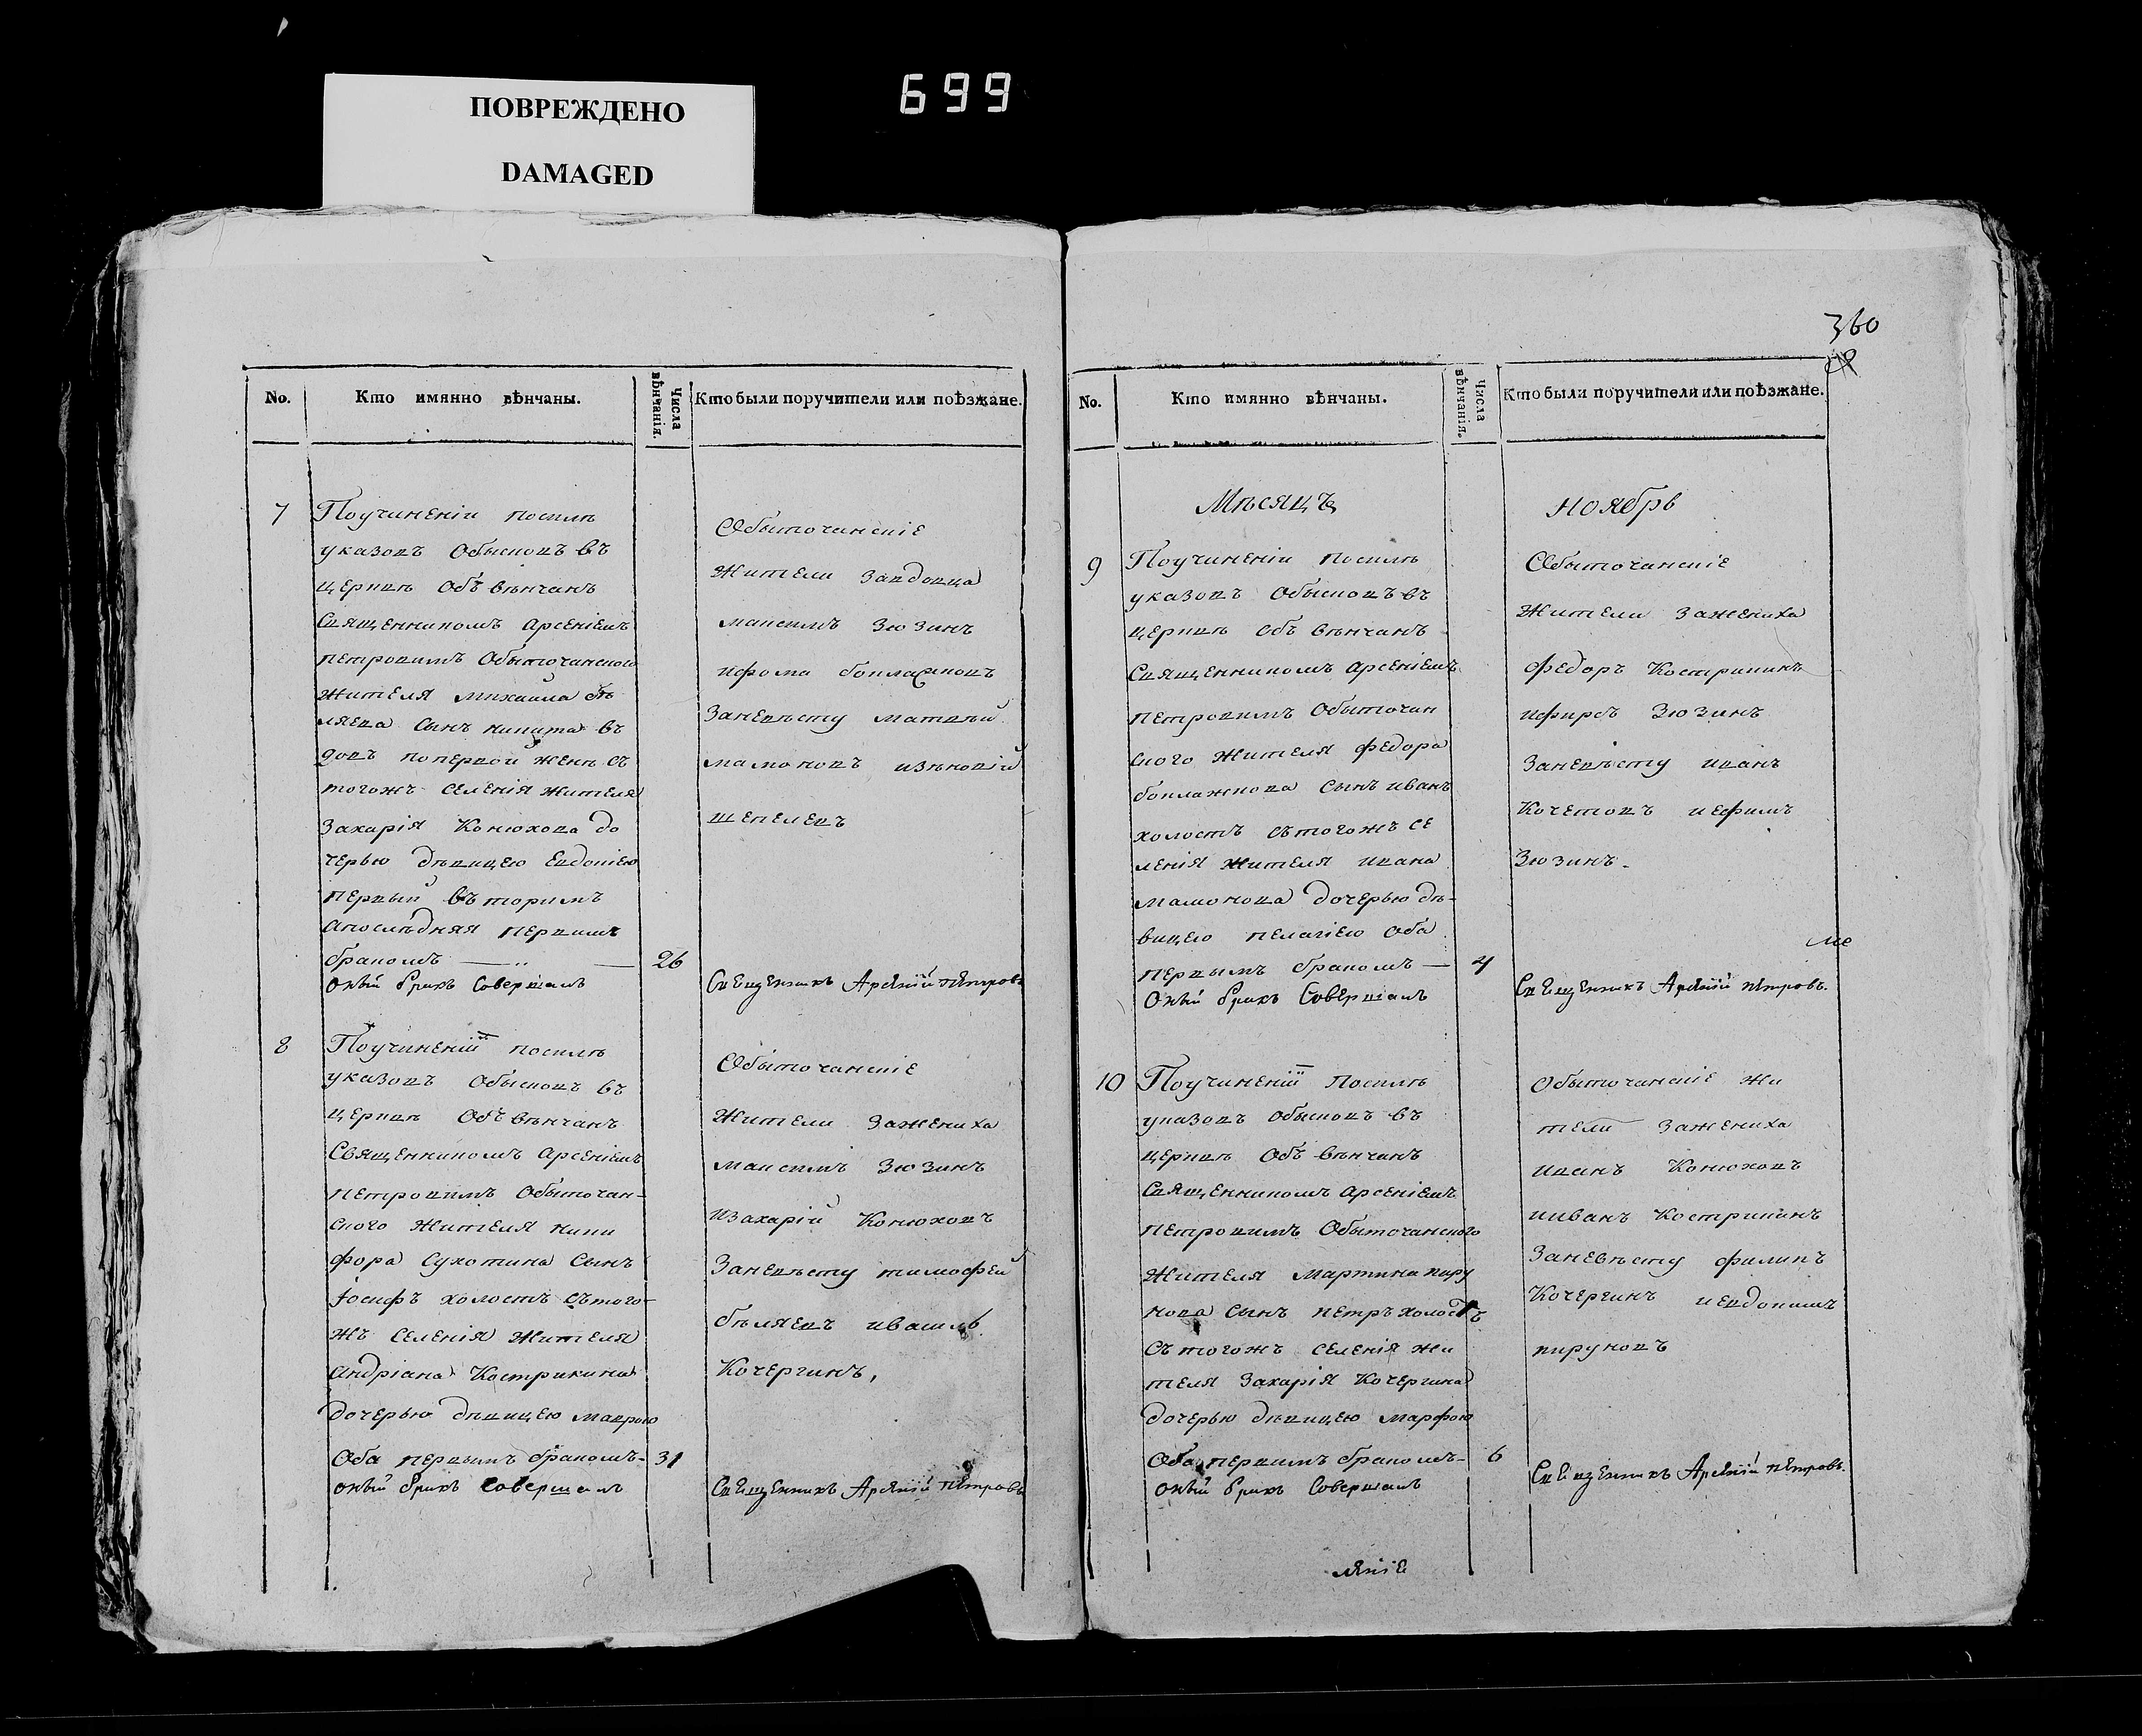 ПОВРЕЖДЕНО
DAMAGED
699
No.
Кто имянно вѣнчаны.
Числа вѣнчанія.
Кто были поручители или поѣзжане.
7
Поучиненіи посилѣ
указовъ Обысковъ въ
церквѣ Объ вѣнчанъ
Священникомъ Арсеніемъ
петровимъ Обыточанского
жителя михаила бѣ
ляева сынъ никита въ
довъ попервой женѣ съ
тогожъ селенія жителя
Захарія Конюхова до
черью дѣвицею Евдокіею
первый въторимъ
апослѣдняя первимъ
бракомъ — „ —
26
оный бракъ Совершалъ
Обыточанскіе
жители Завдовца
максимъ Зюзинъ
ифома боклажковъ
Заневѣсту матвѣй
мамоновъ
шепелевъ
Священникъ Арсеній петровъ
8
Поучиненіи посилѣ
указовъ Обысковъ въ
церквѣ Объ вѣнчанъ
Священникомъ Арсеніемъ
петровимъ Обыточан-
ского жителя ники
фора Сухотина Сынъ
Іосифъ холостъ сътого-
жъ селенія жителя
андріана Кострикина
дочерью дѣвицею маврою
Оба первымъ бракомъ-
31
оный бракъ Совершалъ
Обыточанскіе
жители Зажениха
максимъ Зюзинъ
изахарій Конюховъ
Заневѣсту тимофей
бѣляевъ ивасиль
Кочергинъ,
Священникъ Арсеній петровъ
360
No.
Кто имянно вѣнчаны.
Числа вѣнчанія.
Кто были поручители или поѣзжане.
Мѣсяцъ
Ноябрь
9
Поучиненіи посилѣ
указовъ Обысковъ въ
церквѣ объ вѣнчанъ
Священникомъ арсеніемъ
петровимъ Обыточан
ского жителя федора
боклажкова сынъ иванъ
холостъ сътогожъ се
ленія жителя ивана
мамонова дочерью дѣ-
вицею пелагіею оба
первымъ бракомъ —
4
Оный бракъ Совершалъ
Обыточанскіе
жители Зажениха
федоръ Кострикинъ
ифирсъ Зюзинъ
Заневѣсту иванъ
Кочетовъ иефимъ
Зюзинъ.
Священникъ Арсеній петровъ.
10
Поучиненіи посилѣ
указовъ обысковъ въ
церквѣ Объ вѣнчанъ
Священникомъ арсеніемъ
петровимъ Обыточанского
жителя мартина пиру
нова сынъ петръ холостъ
сътогожъ селенія жи
теля Захарія Кочергина
дочерью дѣвицею марфою
Оба первимъ бракомъ-
6
оный бракъ Совершалъ
Обыточанскіе жи
тели Зажениха
иванъ Конюховъ
ииванъ Кострикинъ
Заневѣсту филипъ
Кочергинъ иевдокимъ
пируновъ
Священникъ Арсеній петровъ.